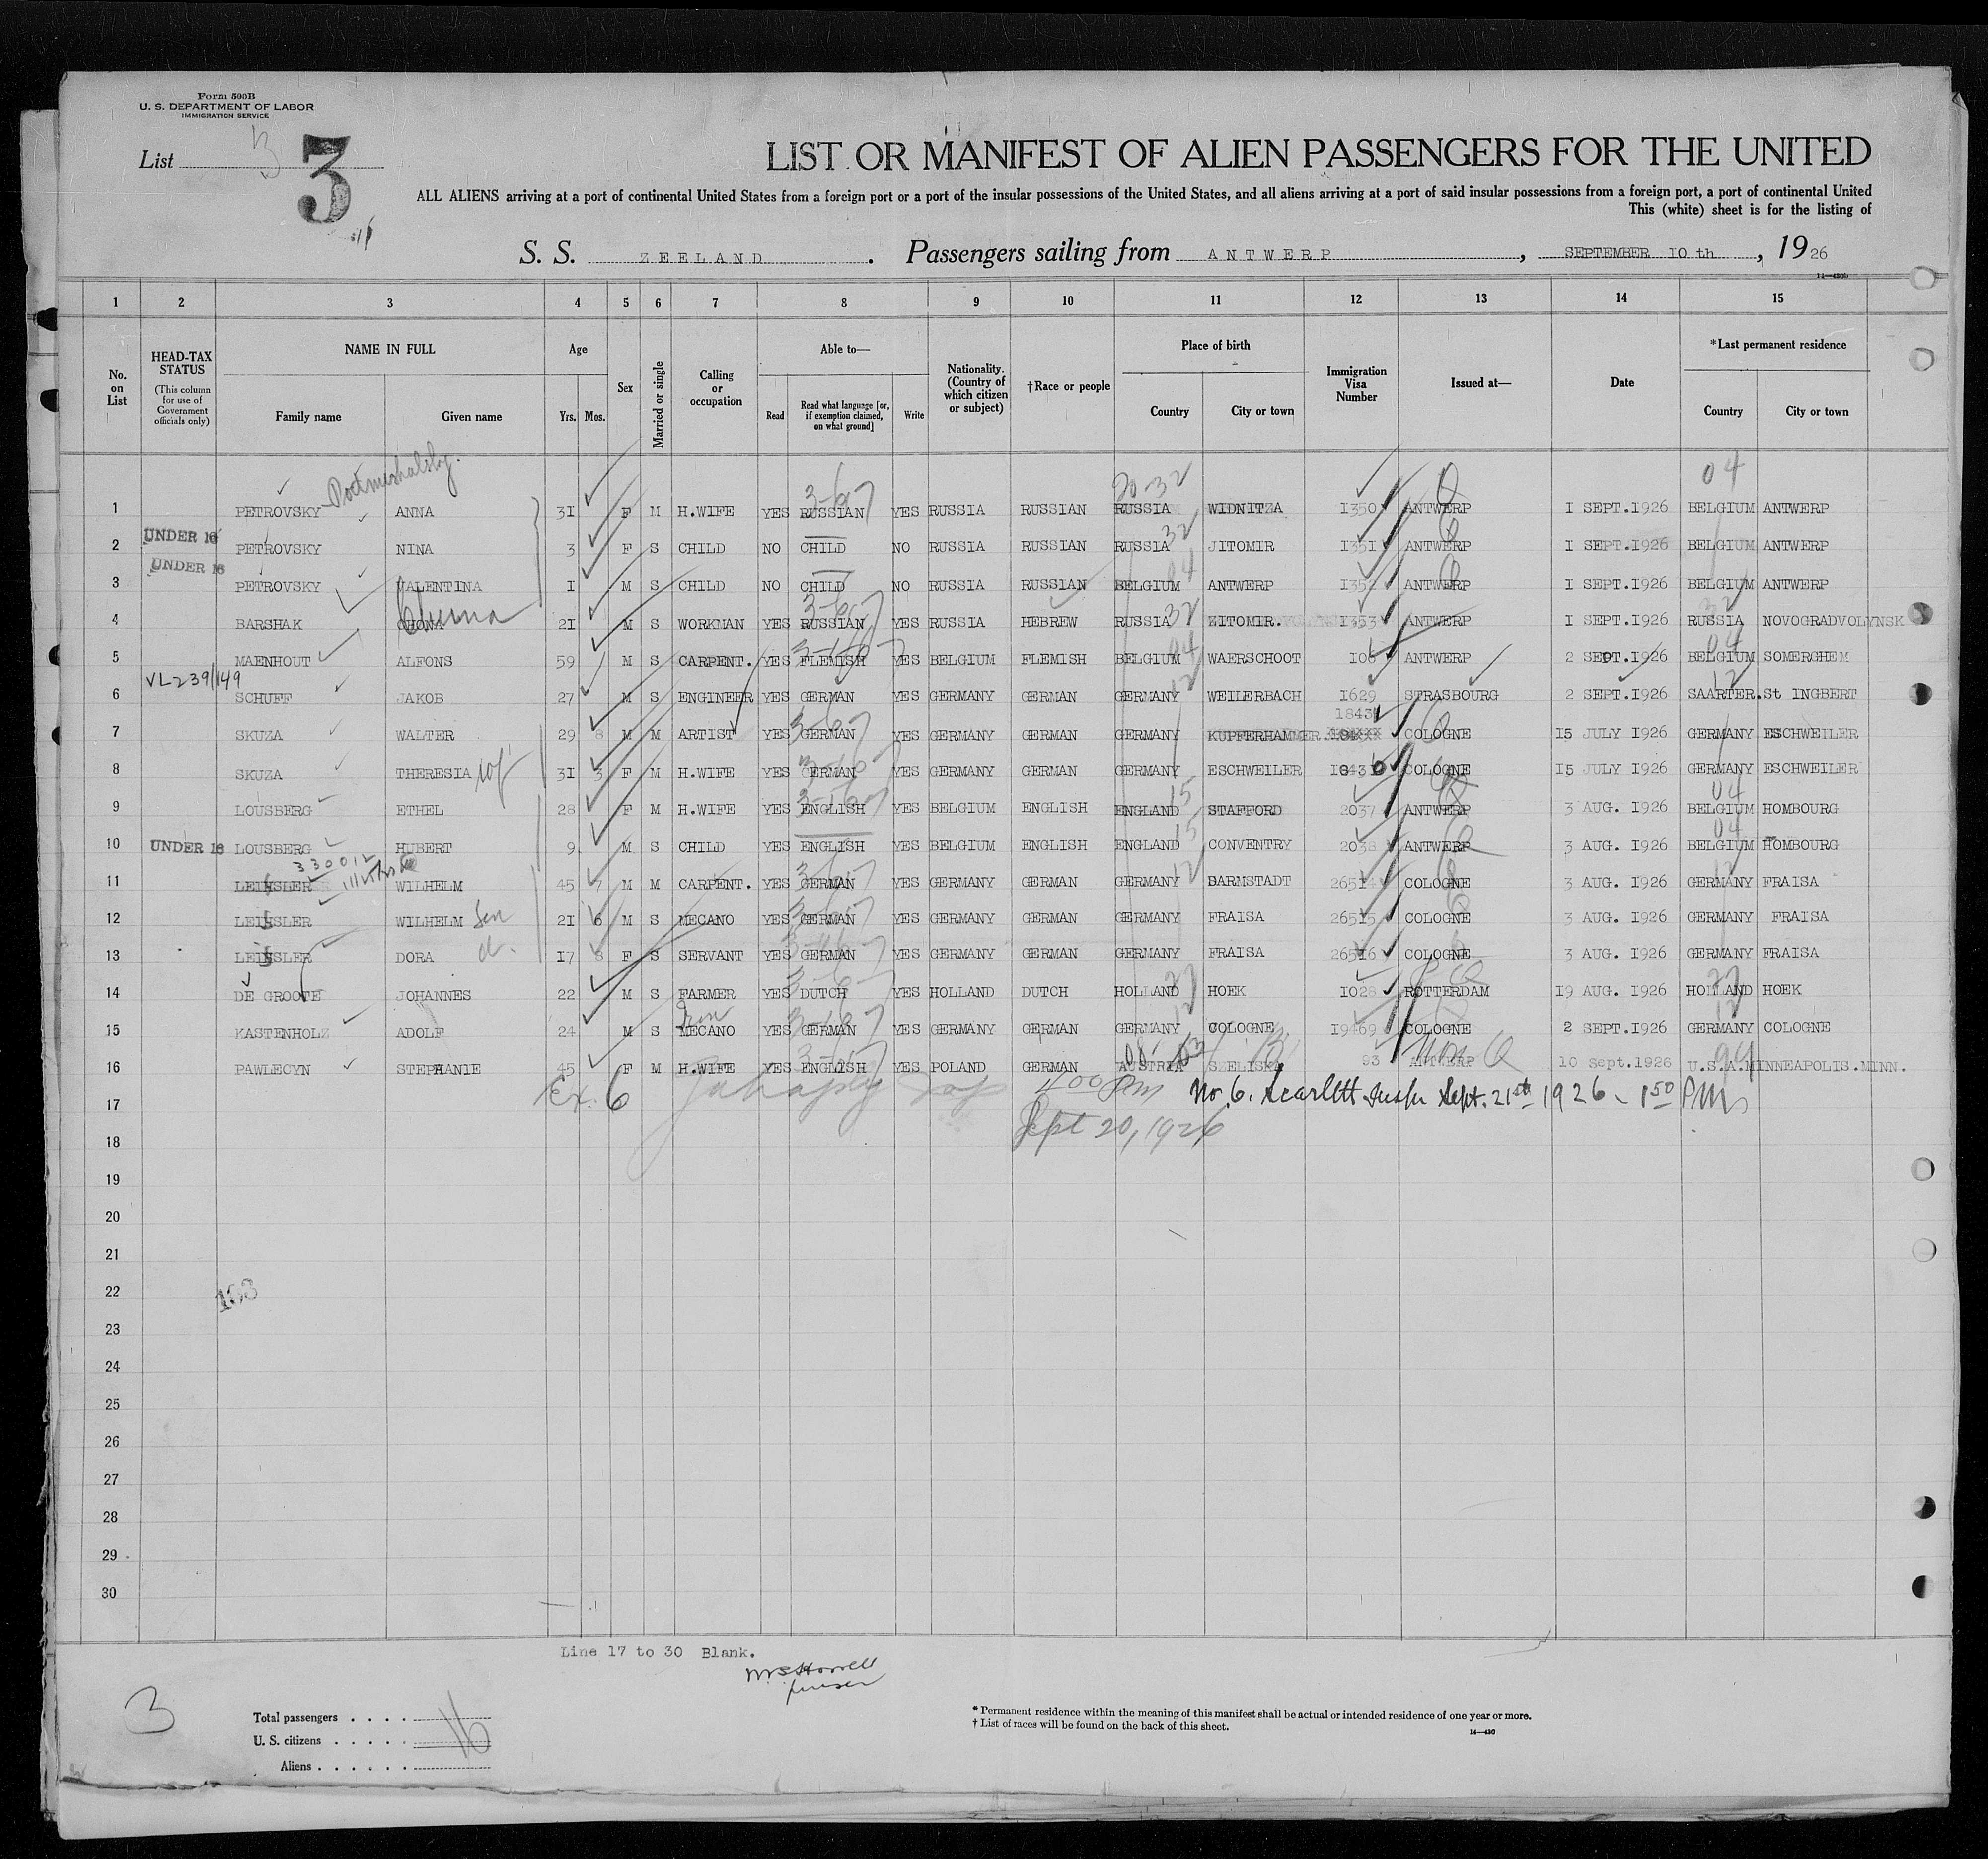 Form 500B
U. S. DEPARTMENT OF LABOR
IMMIGRATION SERVICE
List 3 3
LIST OR MANIFEST OF ALIEN PASSENGERS FOR THE UNITED
ALL ALIENS arriving at a port of continental United States from a foreign port or a port of the insular possessions of the United States, and all aliens arriving at a port of said insular possessions from a foreign port, a port of continental United
This (white) sheet is for the listing of
S. S. ZEELAND . Passengers sailing from ANTWERP , SEPTEMBER 10 th , 19 26
1 2 3 4 5 6 7 8 9 10 11 12 13 14 15
No. on List
HEAD-TAX STATUS (This column for use of Government officials only)
NAME IN FULL Family name Given name
Age Yrs. Mos.
Sex
Married or single
Calling or occupation
Able to— Read Read what language [or, if exemption claimed, on what ground] Write
Nationality. (Country of which citizen or subject)
†Race or people
Place of birth Country City or town
Immigration Visa Number
Issued at—
Date
*Last permanent residence Country City or town
20-32 04
1 PETROVSKY ANNA 31 F M H.WIFE YES RUSSIAN YES RUSSIA RUSSIAN RUSSIA WIDNITZA 1350 ANTWERP 1 SEPT.1926 BELGIUM ANTWERP
2 UNDER 16 PETROVSKY NINA 3 F S CHILD NO CHILD NO RUSSIA RUSSIAN RUSSIA JITOMIR 1351 ANTWERP 1 SEPT.1926 BELGIUM ANTWERP
3 UNDER 16 PETROVSKY VALENTINA 1 M S CHILD NO CHILD NO RUSSIA RUSSIAN BELGIUM ANTWERP 1352 ANTWERP 1 SEPT.1926 BELGIUM ANTWERP
4 BARSHAK 21 M S WORKMAN YES RUSSIAN YES RUSSIA HEBREW RUSSIA ZITOMIR. 1353 ANTWERP 1 SEPT.1926 RUSSIA NOVOGRADVOLYNSK
5 MAENHOUT ALFONS 59 M S CARPENT. YES FLEMISH YES BELGIUM FLEMISH BELGIUM WAERSCHOOT 106 ANTWERP 2 SEPT.1926 BELGIUM SOMERGHEM
VL239/149
6 SCHUFF JAKOB 27 M S ENGINEER YES GERMAN YES GERMANY GERMAN GERMANY WEILERBACH 1629 STRASBOURG 2 SEPT.1926 SAARTER. St INGBERT
7 SKUZA WALTER 29 8 M M ARTIST YES GERMAN YES GERMANY GERMAN GERMANY KUPFERHAMMER 1843 COLOGNE 15 JULY 1926 GERMANY ESCHWEILER
8 SKUZA THERESIA 31 3 F M H.WIFE YES GERMAN YES GERMANY GERMAN GERMANY ESCHWEILER COLOGNE 15 JULY 1926 GERMANY ESCHWEILER
9 LOUSBERG ETHEL 28 F M H.WIFE YES ENGLISH YES BELGIUM ENGLISH ENGLAND STAFFORD 2037 ANTWERP 3 AUG. 1926 BELGIUM HOMBOURG
10 UNDER 16 LOUSBERG HUBERT 9 M S CHILD YES ENGLISH YES BELGIUM ENGLISH ENGLAND COVENTRY 2038 ANTWERP 3 AUG. 1926 BELGIUM HOMBOURG
330012
11 LEISSLER WILHELM 45 7 M M CARPENT. YES GERMAN YES GERMANY GERMAN GERMANY DARMSTADT 26514 COLOGNE 3 AUG. 1926 GERMANY FRAISA
12 LEISSLER WILHELM 21 6 M S MECANO YES GERMAN YES GERMANY GERMAN GERMANY FRAISA 26515 COLOGNE 3 AUG. 1926 GERMANY FRAISA
13 LEISSLER DORA d. 17 8 F S SERVANT YES GERMAN YES GERMANY GERMAN GERMANY FRAISA 26516 COLOGNE 3 AUG. 1926 GERMANY FRAISA
14 DE GROOTE JOHANNES 22 M S FARMER YES DUTCH YES HOLLAND DUTCH HOLLAND HOEK 1028 ROTTERDAM 19 AUG. 1926 HOLLAND HOEK
15 KASTENHOLZ ADOLF 24 M S MECANO YES GERMAN YES GERMANY GERMAN GERMANY COLOGNE 19469 COLOGNE 2 SEPT.1926 GERMANY COLOGNE
16 PAWLECYN STEPHANIE 45 F M H.WIFE YES ENGLISH YES POLAND GERMAN AUSTRIA SZELISKI 93 ANTWERP 10 sept.1926 U.S.A. MINNEAPOLIS.MINN.
17 Ex. 6 4 00 Pm No. 6. Scarlett Sept. 21st 1926 - 1 50 P.M.
18 Sept 20, 1926
19
20
21
22 163
23
24
25
26
27
28
29
30
Line 17 to 30 Blank.
purser
3
Total passengers . . . . 16
U. S. citizens . . . . .
Aliens . . . . . .
* Permanent residence within the meaning of this manifest shall be actual or intended residence of one year or more.
† List of races will be found on the back of this sheet.
14—430